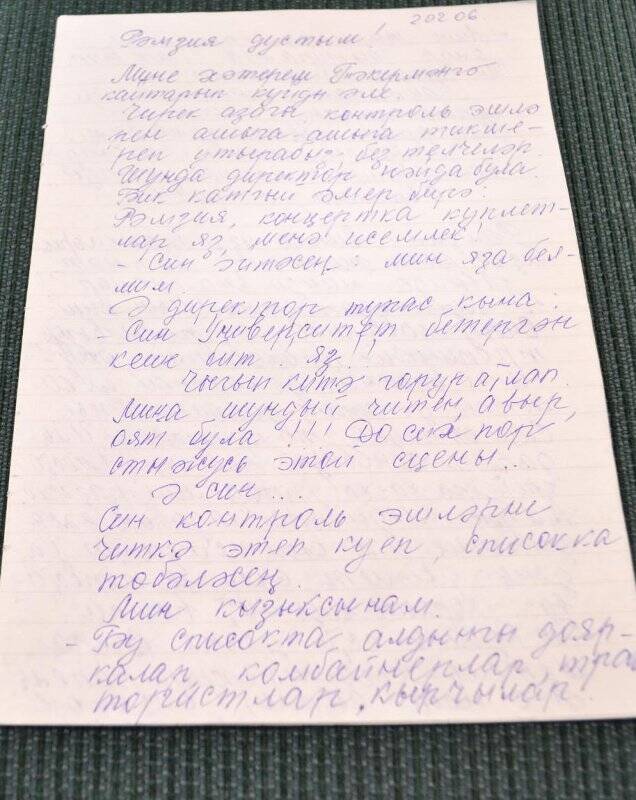 202 06
Рәмзия дустым!
Мине хәтерем Тәкермәнгә
кайтарып куйды әле.
Чирек азагы, контроль эшлә
рен ашыга-ашыга тикше-
реп утырабыз без телчеләр.
Шунда директор пәйда була.
Бик каты әмер бирә:
Рәмзия, концертка куплет-
лар яз, менә исемлек!
- Син әйтәсең: мин яза бел-
мим.
Ә директор тупас кына:
- Син университет бетергән
кеше бит. Яз!!
Чыгып китә горур атлап.
Миңа шундый читен, авыр,
оят була!!! До сих пор
стыжусь этой сцены..
Ә син...
Син контроль эшләрне
читкә этеп куеп, списокка
төбәләсең.
Мин кызыксынам.
- Бу списокта алдынгы дояр-
калар, комбайнерлар, трак
тористлар, кырчылар.